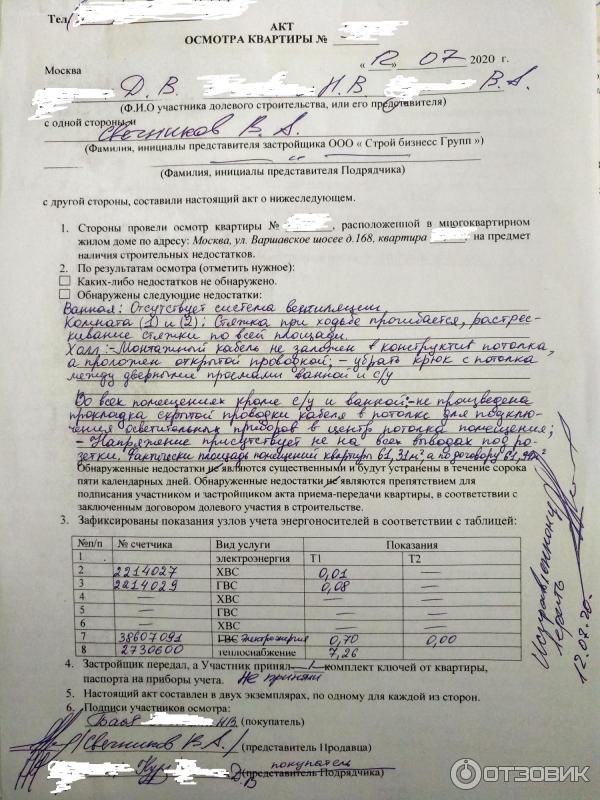 Тел
АКТ
ОСМОТРА КВАРТИРЫ №
« 12 » 07 2020 г.
Москва
Д. В. Н. В. В. А.
(Ф.И.О участника долевого строительства, или его представителя)
с одной стороны, и Свечников В. А.
(Фамилия, инициалы представителя застройщика ООО « Строй бизнесс Групп »)
(Фамилия, инициалы представителя Подрядчика)
с другой стороны, составили настоящий акт о нижеследующем.
1. Стороны провели осмотр квартиры № , расположенной в многоквартирном
жилом доме по адресу: Москва, ул. Варшавское шосее д.168, квартира , на предмет
наличия строительных недостатков.
2. По результатам осмотра (отметить нужное):
Каких-либо недостатков не обнаружено.
Обнаружены следующие недостатки:
Ванная: Отсутствует система вентиляции
Комната (1) и (2): Стяжка при ходьбе прогибается, растрес-
кивание стяжки по всей площади.
Холл: - Монтажный кабель не заложен в конструктив потолка,
а проложен открытой проводкой; - убрать крюк с потолка
между дверными проемами ванной и с/у
Во всех помещениях кроме с/у и ванной: - не произведена
прокладка скрытой проводки кабеля в потолке для подклю-
чения осветительных приборов в центр потолка помещения;
- Напряжение присутствует не на всех вводах под ро-
зетки. Фактически площадь помещений квартиры 61,31м² а по договору 61,90м²
Обнаруженные недостатки не являются существенными и будут устранены в течение сорока
пяти календарных дней. Обнаруженные недостатки не являются препятствием для
подписания участником и застройщиком акта приема-передачи квартиры, в соответствии с
заключенным договором долевого участия в строительстве.
3. Зафиксированы показания узлов учета энергоносителей в соответствии с таблицей:
№п/п № счетчика Вид услуги Показания
1 электроэнергия Т1 Т2
2 2214027 ХВС 0,01 —
3 2214029 ГВС 0,08 —
4 — ХВС — —
5 — ГВС — —
6 — ХВС — —
7 38607091 ГВС Электроэнергия 0,70 0,00
8 2730600 теплоснабжение 7,26
4. Застройщик передал, а Участник принял 1 комплект ключей от квартиры,
паспорта на приборы учета. Не приняли
5. Настоящий акт составлен в двух экземплярах, по одному для каждой из сторон.
6. Подписи участников осмотра:
НВ (покупатель)
/Свечников В. А./ (представитель Продавца)
Д.В покупатель
(представитель Подрядчика)
Исправленному
верить
12.07.20.
ОТЗОВИК